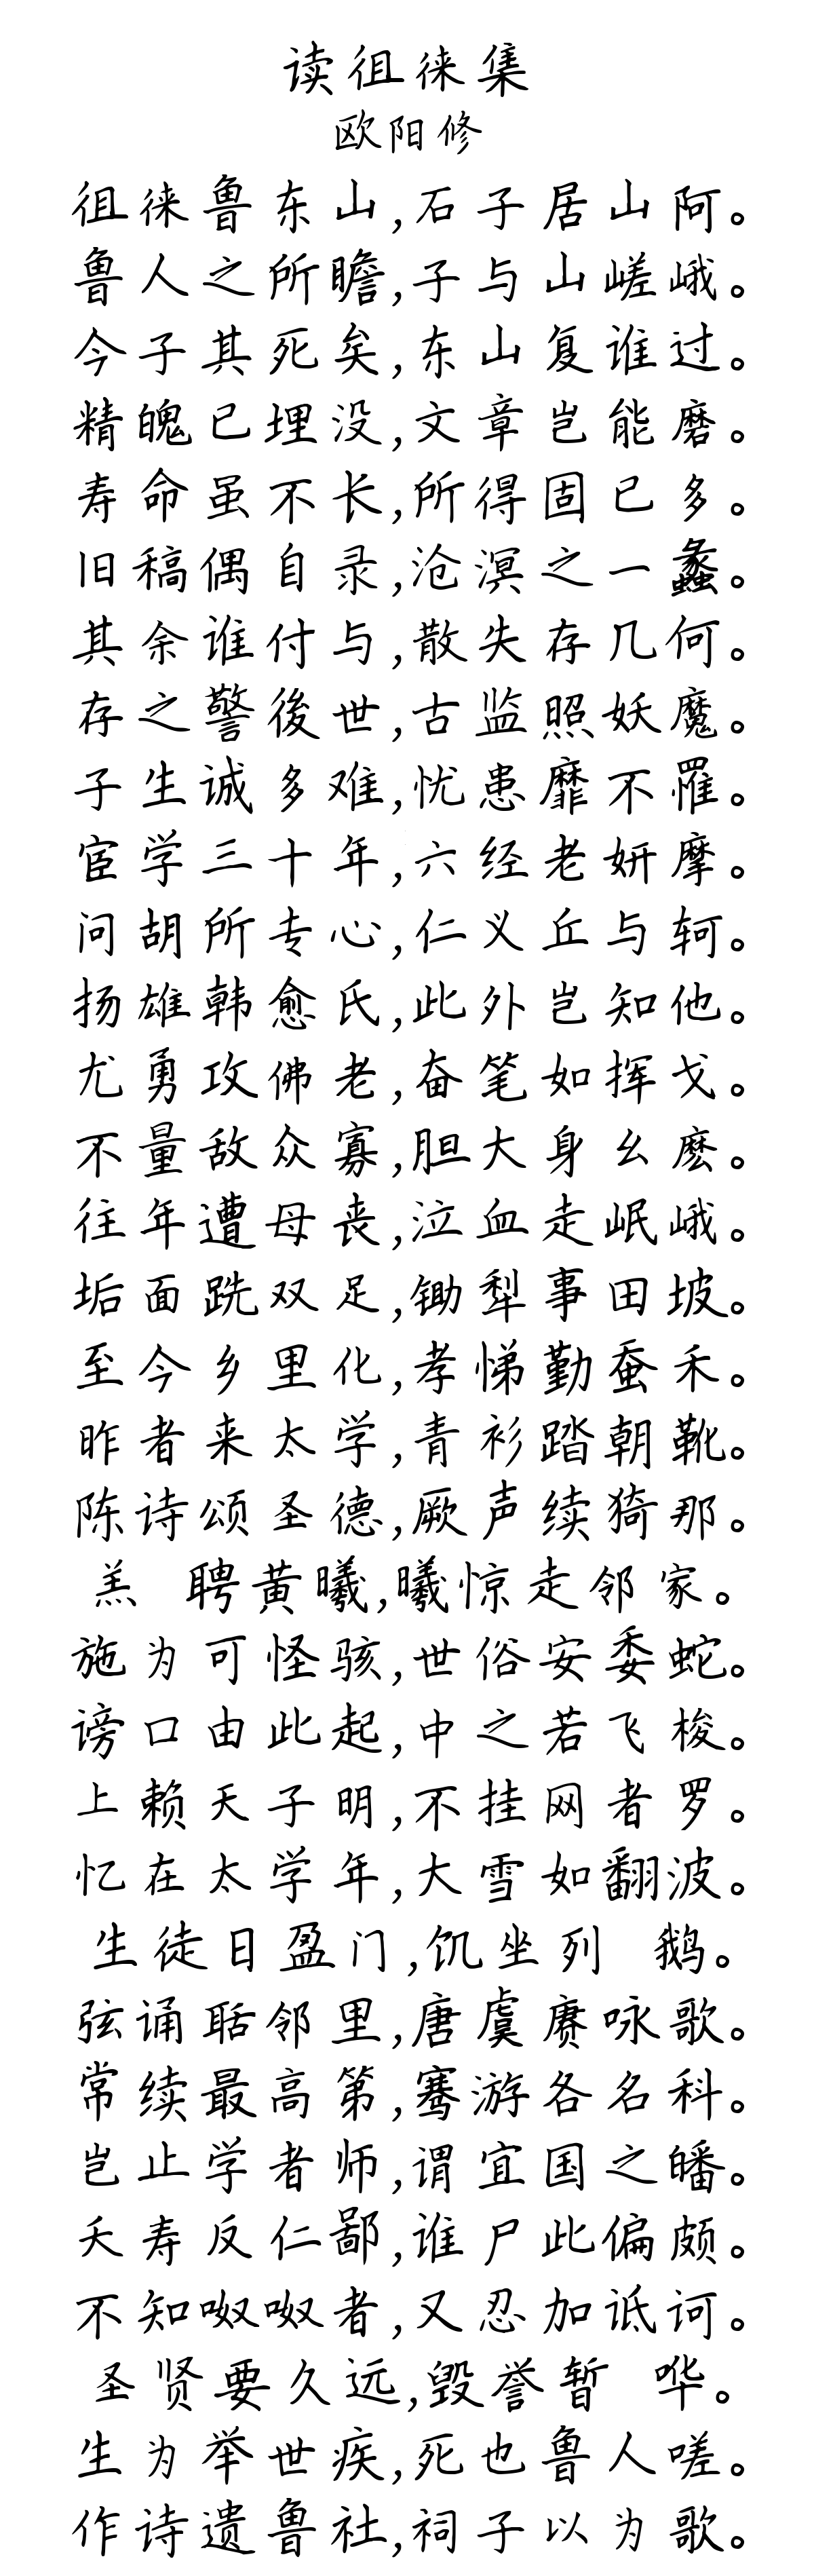 读徂徕集
欧阳修
徂徕鲁东山,石子居山阿。
鲁人之所瞻,子与山嵯峨。
今子其死矣,东山复谁过。
精魄已埋没,文章岂能磨。
寿命虽不长,所得固已多。
旧稿偶自录,沧溟之一蠡。
其余谁付与,散失存几何。
存之警後世,古监照妖魔。
子生诚多难,忧患靡不罹。
宦学三十年,六经老妍摩。
问胡所专心,仁义丘与轲。
扬雄韩愈氏,此外岂知他。
尤勇攻佛老,奋笔如挥戈。
不量敌众寡,胆大身幺麽。
往年遭母丧,泣血走岷峨。
垢面跣双足,锄犁事田坡。
至今乡里化,孝悌勤蚕禾。
昨者来太学,青衫踏朝靴。
陈诗颂圣德,厥声续猗那。
羔 聘黄曦,曦惊走邻家。
施为可怪骇,世俗安委蛇。
谤口由此起,中之若飞梭。
上赖天子明,不挂网者罗。
忆在太学年,大雪如翻波。
生徒日盈门,饥坐列 鹅。
弦诵聒邻里,唐虞赓咏歌。
常续最高第,骞游各名科。
岂止学者师,谓宜国之皤。
夭寿反仁鄙,谁尸此偏颇。
不知呶呶者,又忍加诋诃。
圣贤要久远,毁誉暂 哗。
生为举世疾,死也鲁人嗟。
作诗遗鲁社,祠子以为歌。